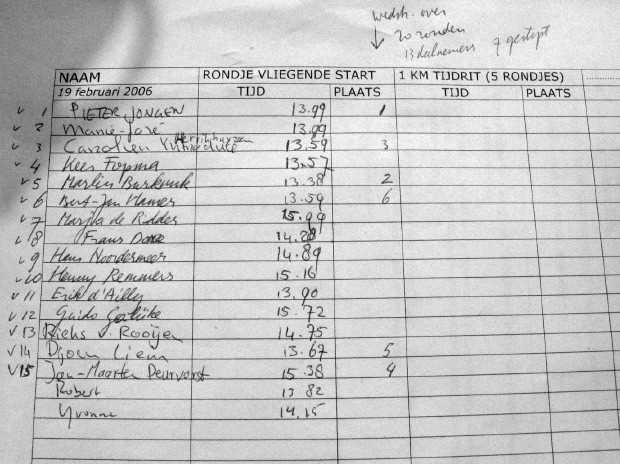 wedstr. over
20 ronden
13 deelnemers 7 gestopt
NAAM RONDJE VLIEGENDE START 1 KM TIJDRIT (5 RONDJES)
19 februari 2006 TIJD PLAATS TIJD PLAATS
v 1 PIETER JONGEN 13.99 1
v 2 Marie-José 13.99
v 3 Carolien 13.59 3
v 4 Kees Fopma 13.57
v 5 Martin 13.38 2
v 6 Bert-Jan 13.59 6
v 7 Marjka de Ridder 15.99
v 8 Frans 14.28
v 9 Hans Noordermeer 14.89
v 10 Henny Remmers 15.16
v 11 Erik d'Ailly 13.90
v 12 Guido 15.72
v 13 Rieks v. Rooijen 14.75
v 14 Djoen Liem 13.67 5
v 15 Jan-Maarten Deurvorst 15.38 4
Robert 13 82
Yvonne 14.15